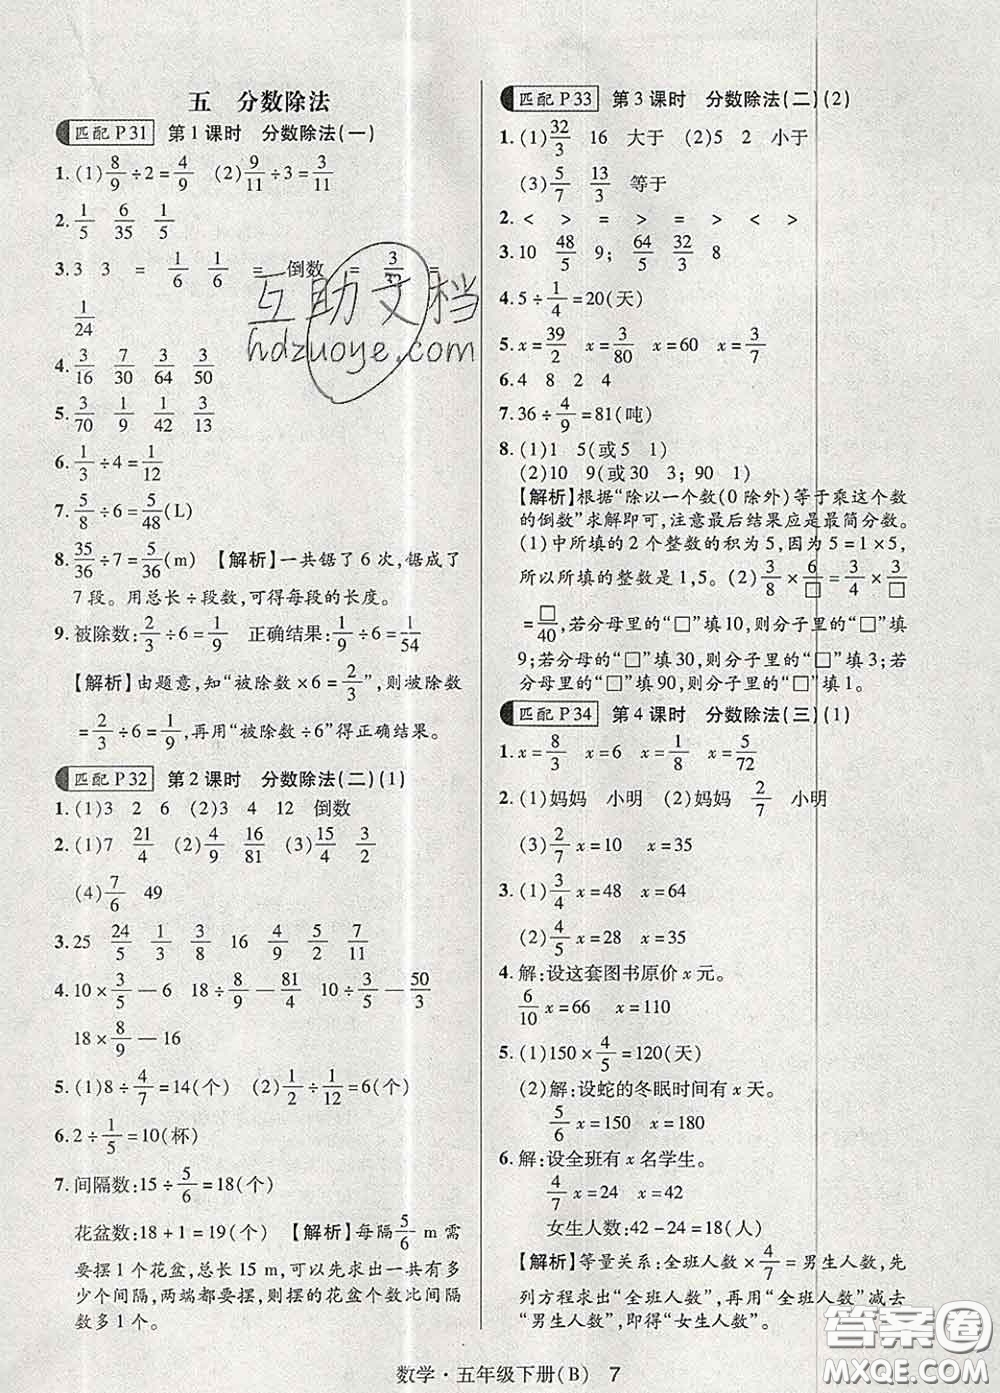 五 分数除法
匹配 P31 第1课时 分数除法(一)
1.(1)8/9÷2=4/9 (2)9/11÷3=3/11
2. 1/5 6/35 1/5
3. 3 3 = 1/6 1/6 = 倒数 = =
1/24
4. 3/16 7/30 3/64 3/50
5. 3/70 1/9 1/42 3/13
6. 1/3÷4=1/12
7. 5/8÷6=5/48(L)
8. 35/36÷7=5/36(m) 【解析】一共锯了6次,锯成了
7段。用总长÷段数,可得每段的长度。
9. 被除数:2/3÷6=1/9 正确结果:1/9÷6=1/54
【解析】由题意,知“被除数×6=2/3”,则被除数
=2/3÷6=1/9,再用“被除数÷6”得正确结果。
匹配 P32 第2课时 分数除法(二)(1)
1.(1)3 2 6 (2)3 4 12 倒数
2.(1)7 21/4 (2)4/9 16/81 (3)15/4 3/2
(4)7/6 49
3. 25 24/5 1/3 3/8 16 4/9 5/2 7/11
4. 10×3/5—6 18÷8/9—81/4 10÷3/5—50/3
18×8/9—16
5.(1)8÷4/7=14(个) (2)1/2÷1/12=6(个)
6. 2÷1/5=10(杯)
7. 间隔数:15÷5/6=18(个)
花盆数:18+1=19(个) 【解析】每隔5/6 m需
要摆1个花盆,总长15 m,可以先求出一共有多
少个间隔,两端都要摆,则摆的花盆个数比间隔
数多1个。
匹配 P33 第3课时 分数除法(二)(2)
1.(1)32/3 16 大于 (2)5 2 小于
(3)5/7 13/3 等于
2. < > = > = > < >
3. 10 48/5 9; 64/5 32/3 8
4. 5÷1/4=20(天)
5. x=39/2 x=3/80 x=60 x=3/7
6. 4 8 2 4
7. 36÷4/9=81(吨)
8.(1)1 5(或5 1)
(2)10 9(或30 3;90 1)
【解析】根据“除以一个数(0除外)等于乘这个数
的倒数”求解即可,注意最后结果应是最简分数。
(1)中所填的2个整数的积为5,因为5=1×5,
所以所填的整数是1,5。(2)3/8×6/□=3/4×3/□
=□/40,若分母里的“□”填10,则分子里的“□”填
9;若分母里的“□”填30,则分子里的“□”填3;若
分母里的“□”填90,则分子里的“□”填1。
匹配 P34 第4课时 分数除法(三)(1)
1. x=8/3 x=6 x=1/8 x=5/72
2.(1)妈妈 小明 (2)妈妈 2/7 小明
(3)2/7 x=10 x=35
3.(1)3/4 x=48 x=64
(2)4/5 x=28 x=35
4. 解:设这套图书原价x元。
6/10 x=66 x=110
5.(1)150×4/5=120(天)
(2)解:设蛇的冬眠时间有x天。
5/6 x=150 x=180
6. 解:设全班有x名学生。
4/7 x=24 x=42
女生人数:42-24=18(人)
【解析】等量关系:全班人数×4/7=男生人数,先
列方程求出“全班人数”,再用“全班人数”减去
“男生人数”,即得“女生人数”。
数学·五年级下册(B) 7
互助文档
hdzuoye.com
答案圈
MXQE.COM